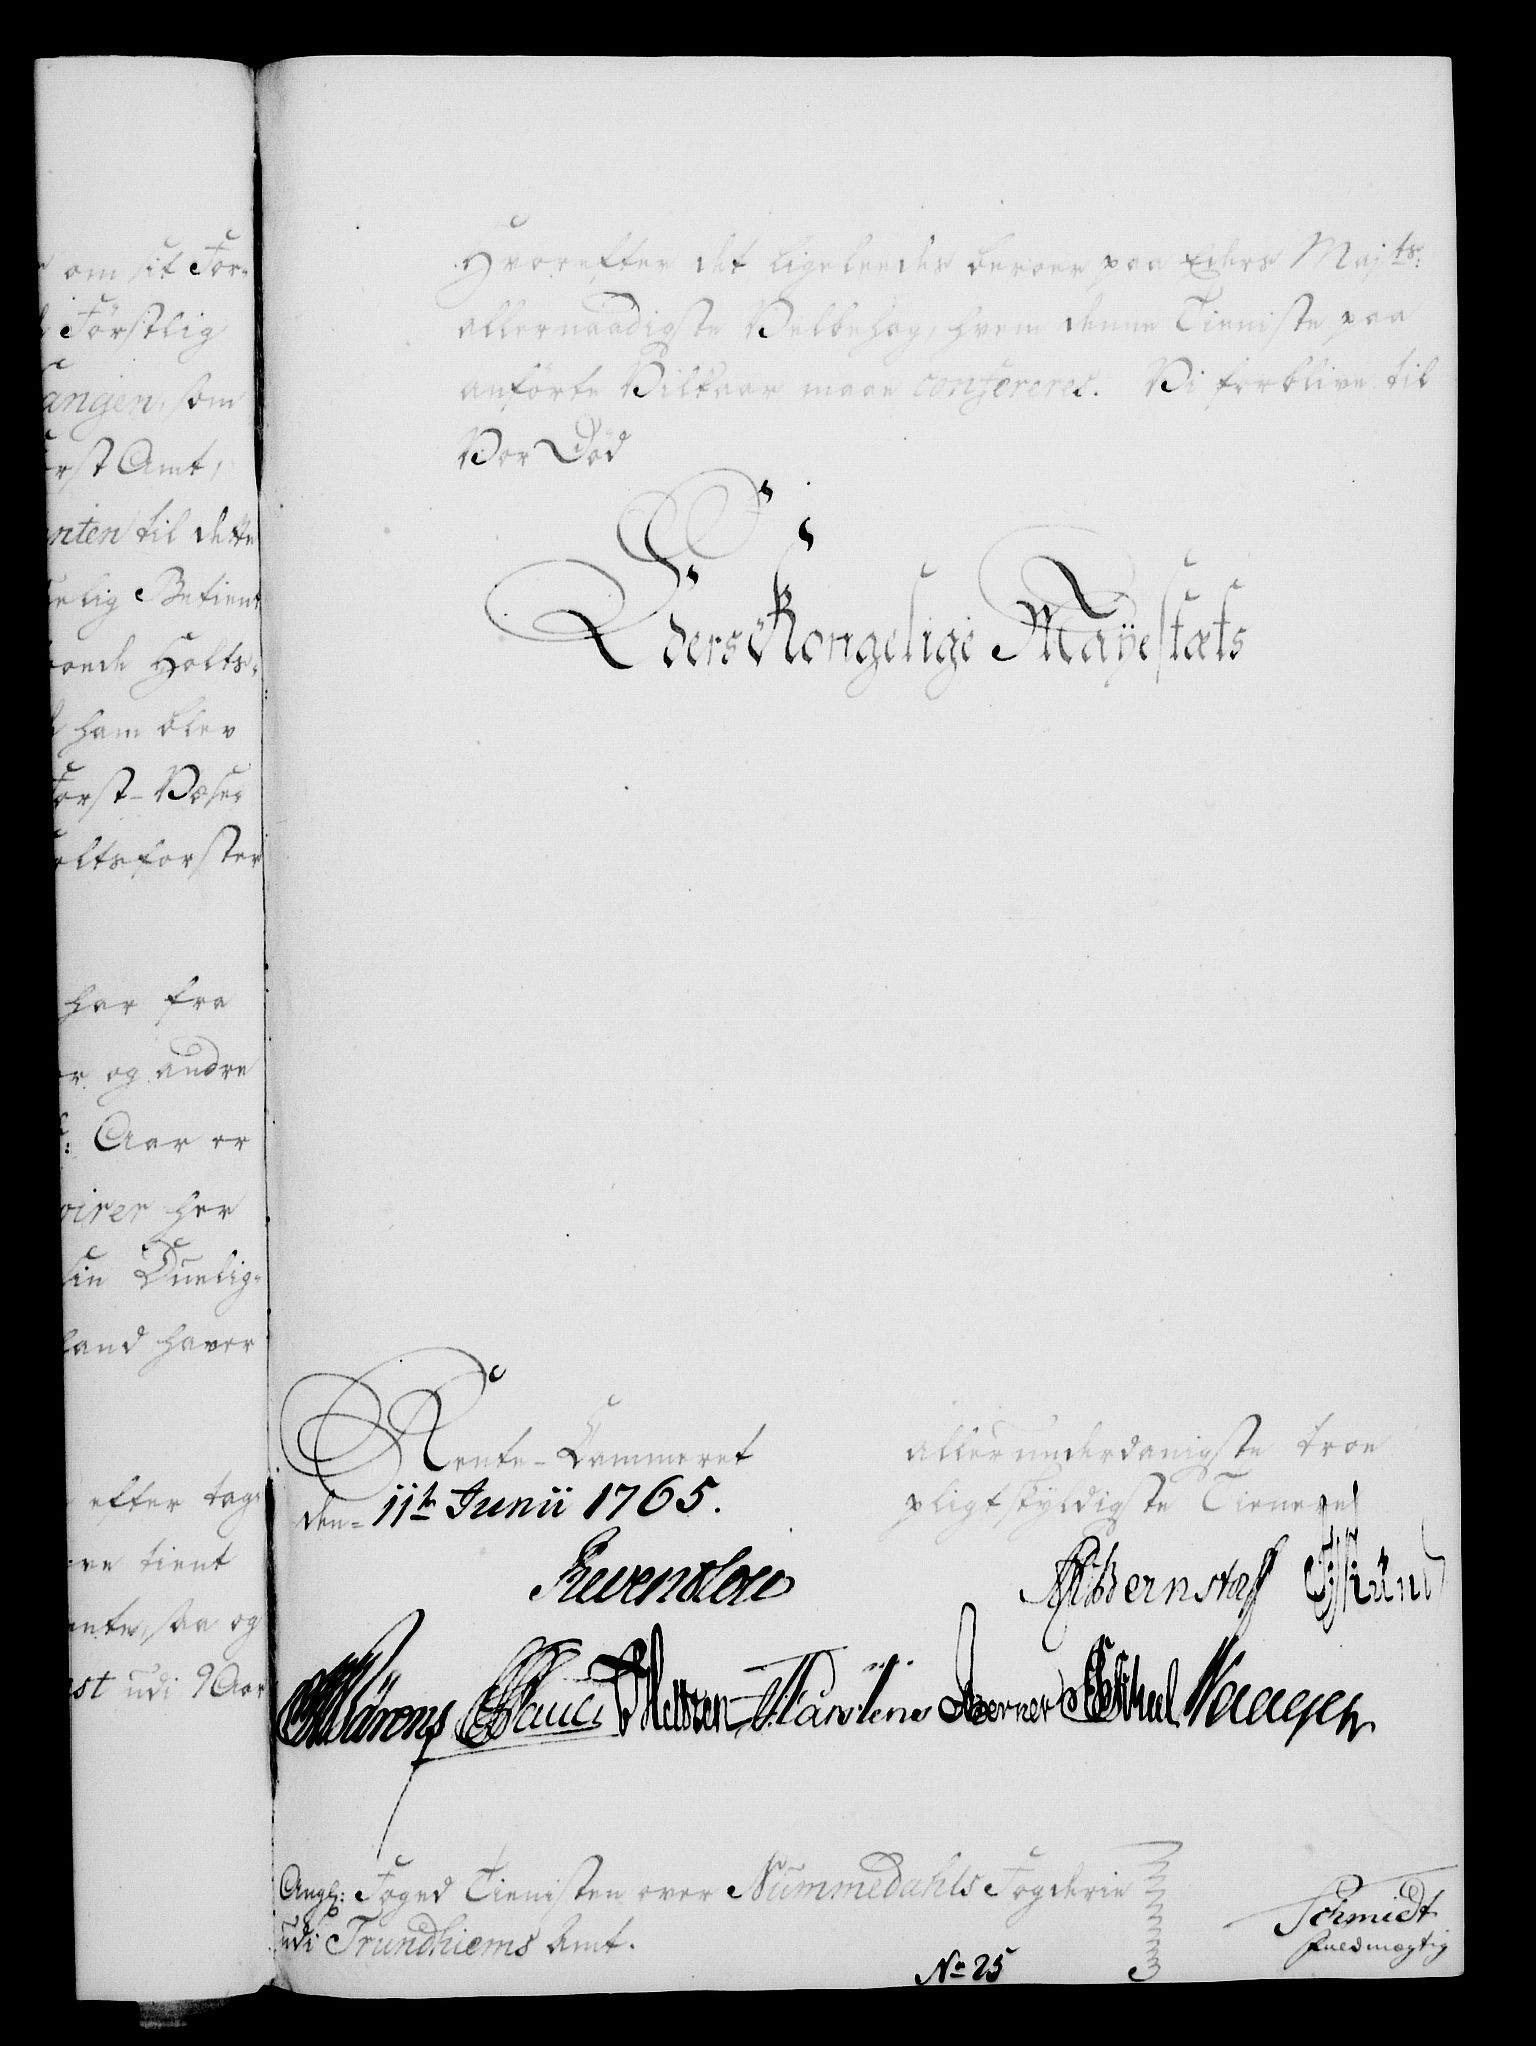 om sit For-
Förstlig
angen, som
rst Amt,
nten til dette
elig Betient
Holts-
ham blev
Forst-Væsen
oltsforster
har fra
er og andre
Aar er
oirer her
sin Duelig-
land haver
efter tag-
tient
saa og
st udi 9 Aar
Hvorefter det ligeleedes beroer paa Eders Majts:
allernaadigste Velbehag, hvem denne Tieniste paa
anførte Vilkaar maae confereres. Vi forblive til
Vor Död
Eders Kongelige Mayestæts
Rente-Cammeret
den- 11te Junii 1765.
allerunderdanigste troe
pligtskyldigste Tienere
Reventlow
Bernstorff
Knud
Ahrens Clauci Meltzen Karstens Berner Scheel Waagen
Angl: Foged Tienisten over Nummedahls Fogderie
udi Trundhiems Amt.
No 25
Schmidt
fuldmægtig